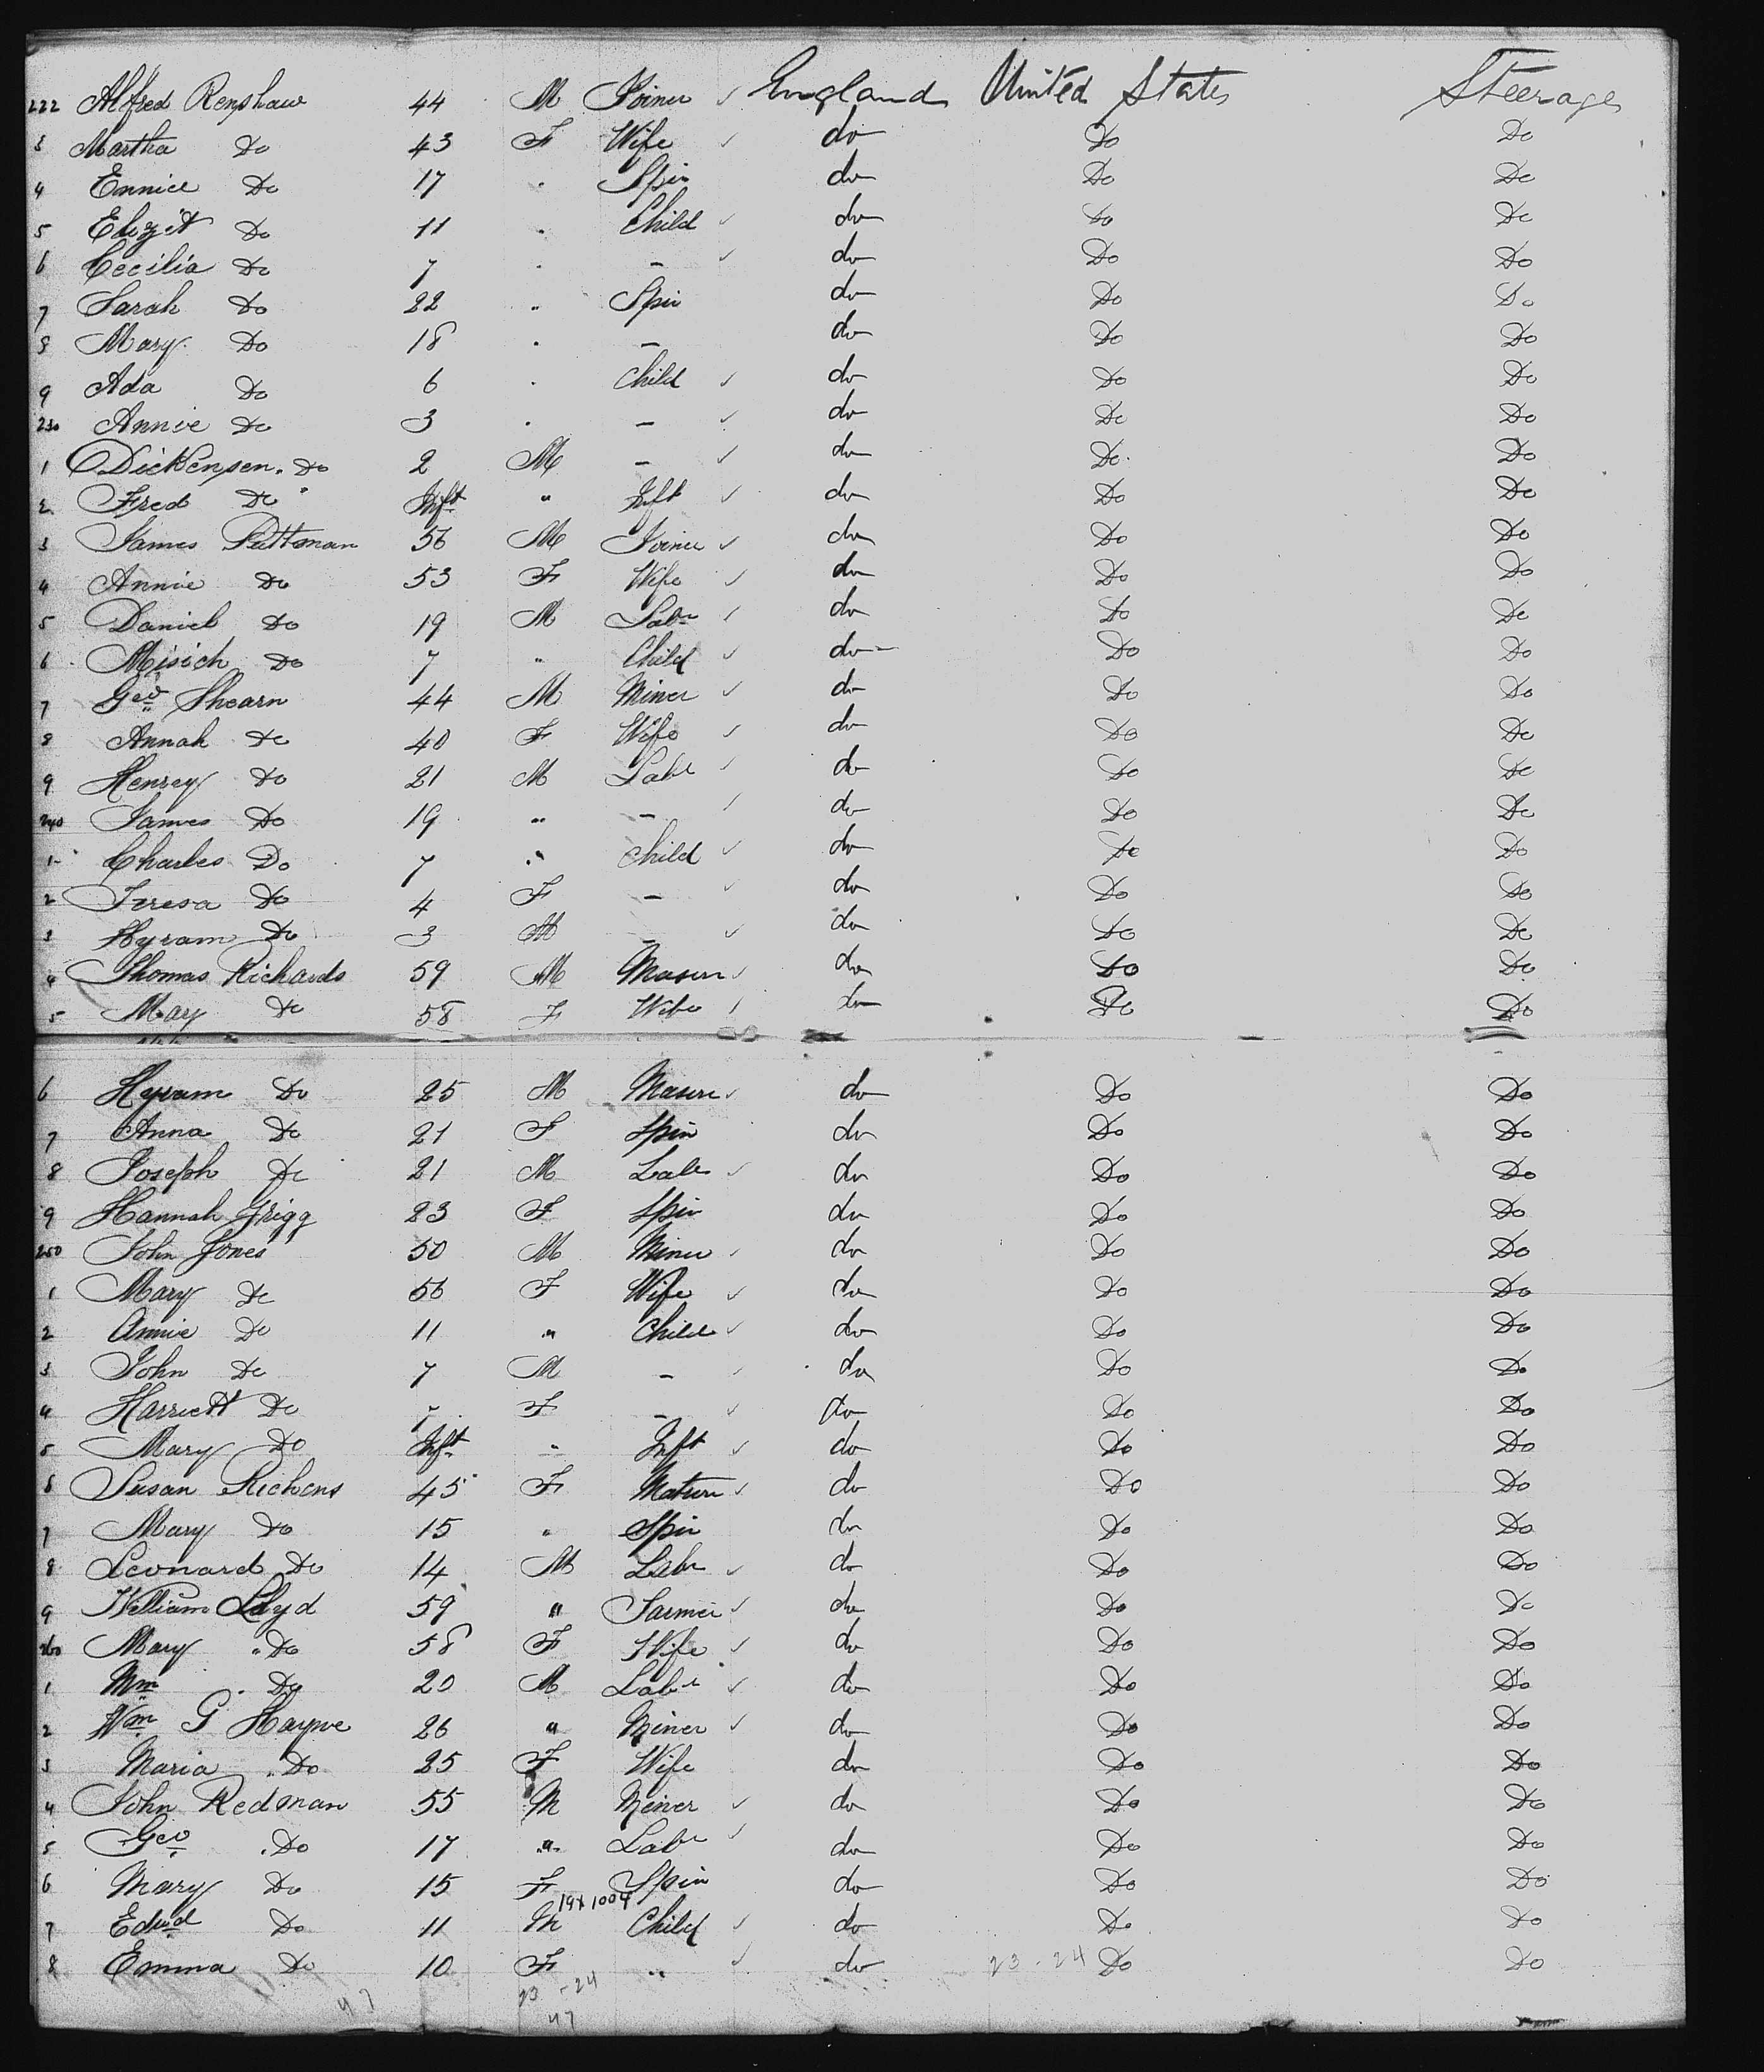 222 Alfred Renshaw 44 M Joiner ✓ England United States Steerage
3 Martha Do 43 F Wife ✓ do Do Do
4 Ennice Do 17 " Spin do Do Do
5 Elizth Do 11 " Child ✓ do Do Do
6 Cecilia Do 7 " – ✓ do Do Do
7 Sarah Do 22 " Spin do Do Do
8 Mary Do 18 " – do Do Do
9 Ada Do 6 " Child ✓ do Do Do
230 Annie Do 3 " – ✓ do Do Do
1 Dickensen Do 2 M – ✓ do Do Do
2 Fred Do Inft " Inft ✓ do Do Do
3 James Puttman 56 M Joiner ✓ do Do Do
4 Annie Do 53 F Wife ✓ do Do Do
5 Daniel Do 19 M Labr ✓ do Do Do
6 Misich Do 7 " Child ✓ do Do Do
7 Geo Shearn 44 M Miner ✓ do Do Do
8 Annah Do 40 F Wife ✓ do Do Do
9 Henrey Do 21 M Labr ✓ do Do Do
240 James Do 19 " – ✓ do Do Do
1 Charles Do 7 " Child ✓ do Do Do
2 Teresa Do 4 F – ✓ do Do Do
3 Hyram Do 3 M – ✓ do Do Do
4 Thomas Richards 59 M Mason ✓ do Do Do
5 Mary Do 58 F Wife ✓ do Do Do
6 Hyram Do 25 M Mason ✓ do Do Do
7 Anna Do 21 F Spin do Do Do
8 Joseph Do 21 M Labr ✓ do Do Do
9 Hannah Grigg 23 F Spin do Do Do
250 John Jones 50 M Miner ✓ do Do Do
1 Mary Do 56 F Wife ✓ do Do Do
2 Annie Do 11 " Child ✓ do Do Do
3 John Do 7 M – ✓ do Do Do
4 Harriett Do 7 F – ✓ do Do Do
5 Mary Do Inft " Inft ✓ do Do Do
6 Susan Richens 45 F Matron ✓ do Do Do
7 Mary Do 15 " Spin do Do Do
8 Leonard Do 14 M Labr ✓ do Do Do
9 William Lloyd 59 " Farmer ✓ do Do Do
260 Mary Do 58 F Wife ✓ do Do Do
1 Wm Do 20 M Labr ✓ do Do Do
2 Wm G Hayne 26 " Miner ✓ do Do Do
3 Maria Do 25 F Wife do Do Do
4 John Redman 55 M Miner ✓ do Do Do
5 Geo Do 17 " Labr ✓ do Do Do
6 Mary Do 15 F Spin do Do Do
7 Edwd Do 11 M Child ✓ do Do Do
8 Emma Do 10 F " ✓ do 23-24 Do Do
47 23-24
47